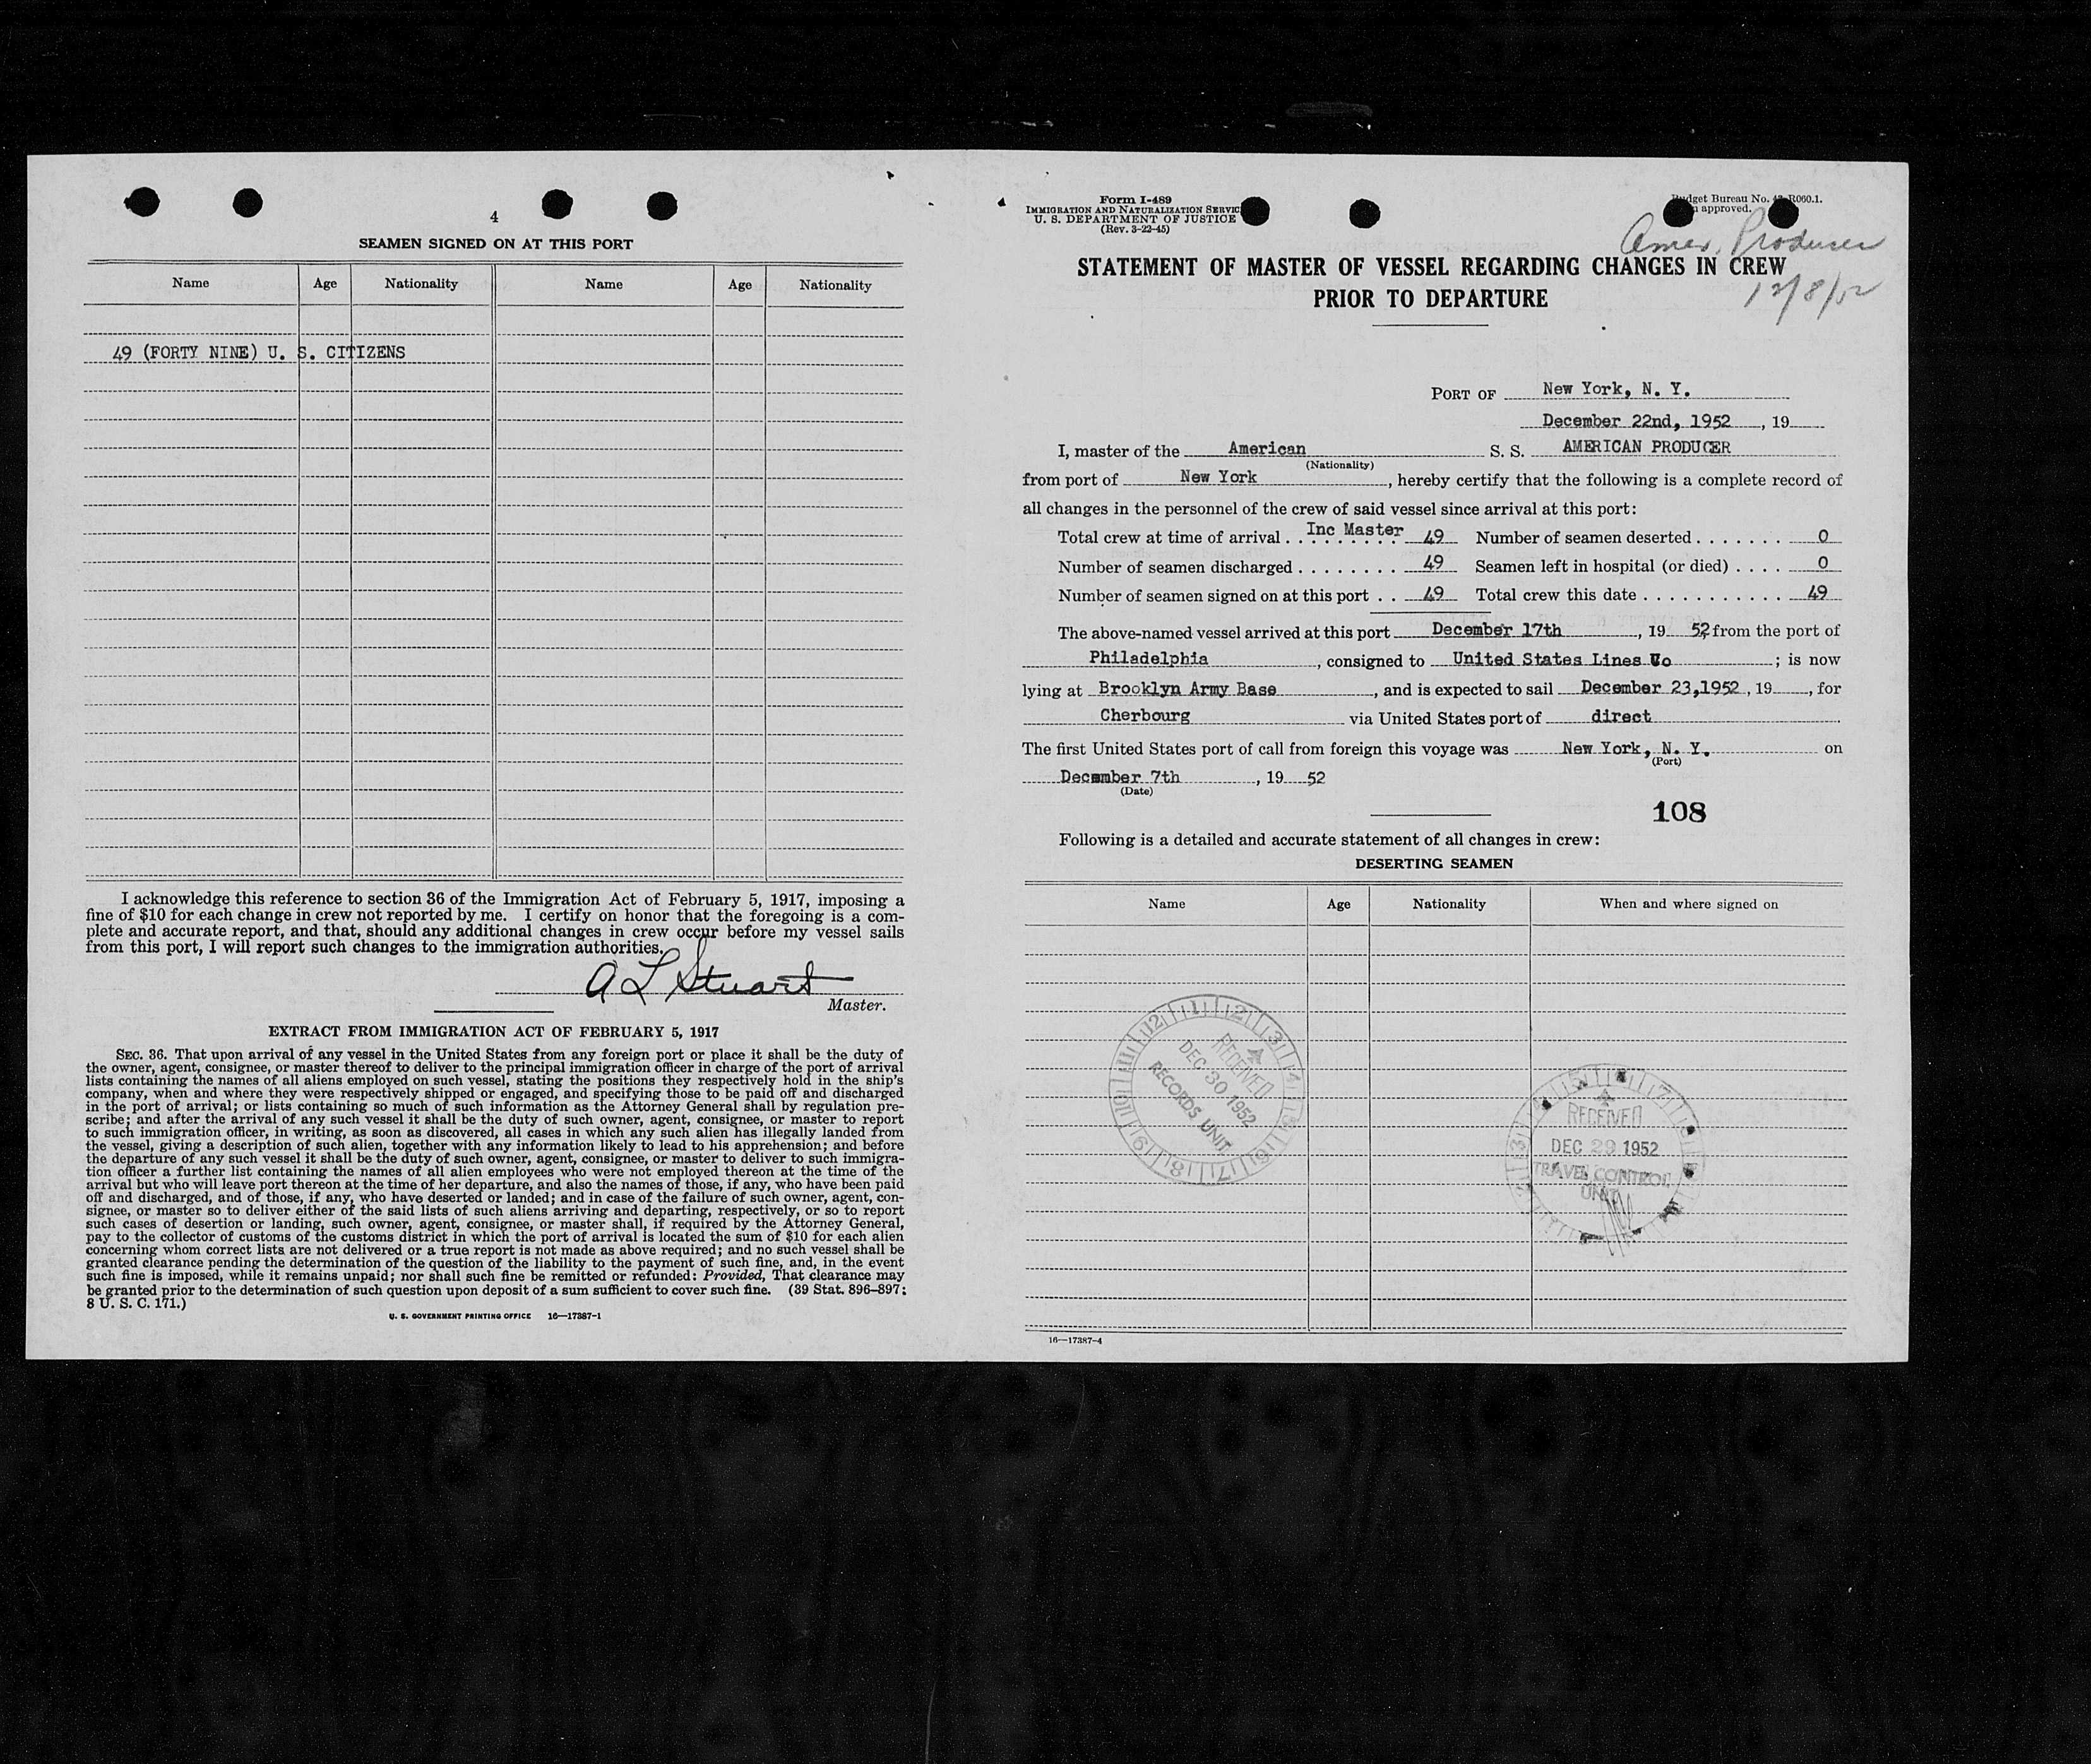 4
SEAMEN SIGNED ON AT THIS PORT
Name Age Nationality Name Age Nationality
49 (FORTY NINE) U. S. CITIZENS
I acknowledge this reference to section 36 of the Immigration Act of February 5, 1917, imposing a
fine of $10 for each change in crew not reported by me. I certify on honor that the foregoing is a com-
plete and accurate report, and that, should any additional changes in crew occur before my vessel sails
from this port, I will report such changes to the immigration authorities.
A L Stuart
Master.
EXTRACT FROM IMMIGRATION ACT OF FEBRUARY 5, 1917
SEC. 36. That upon arrival of any vessel in the United States from any foreign port or place it shall be the duty of
the owner, agent, consignee, or master thereof to deliver to the principal immigration officer in charge of the port of arrival
lists containing the names of all aliens employed on such vessel, stating the positions they respectively hold in the ship's
company, when and where they were respectively shipped or engaged, and specifying those to be paid off and discharged
in the port of arrival; or lists containing so much of such information as the Attorney General shall by regulation pre-
scribe; and after the arrival of any such vessel it shall be the duty of such owner, agent, consignee, or master to report
to such immigration officer, in writing, as soon as discovered, all cases in which any such alien has illegally landed from
the vessel, giving a description of such alien, together with any information likely to lead to his apprehension; and before
the departure of any such vessel it shall be the duty of such owner, agent, consignee, or master to deliver to such immigra-
tion officer a further list containing the names of all alien employees who were not employed thereon at the time of the
arrival but who will leave port thereon at the time of her departure, and also the names of those, if any, who have been paid
off and discharged, and of those, if any, who have deserted or landed; and in case of the failure of such owner, agent, con-
signee, or master so to deliver either of the said lists of such aliens arriving and departing, respectively, or so to report
such cases of desertion or landing, such owner, agent, consignee, or master shall, if required by the Attorney General,
pay to the collector of customs of the customs district in which the port of arrival is located the sum of $10 for each alien
concerning whom correct lists are not delivered or a true report is not made as above required; and no such vessel shall be
granted clearance pending the determination of the question of the liability to the payment of such fine, and, in the event
such fine is imposed, while it remains unpaid; nor shall such fine be remitted or refunded: Provided, That clearance may
be granted prior to the determination of such question upon deposit of a sum sufficient to cover such fine. (39 Stat. 896–897;
8 U. S. C. 171.)
U. S. GOVERNMENT PRINTING OFFICE 16—17387-1
Form I-489
IMMIGRATION AND NATURALIZATION SERVIC
U. S. DEPARTMENT OF JUSTICE
(Rev. 3-22-45)
dget Bureau No. R060.1.
approved.
Amer. Producer
12/8/52
STATEMENT OF MASTER OF VESSEL REGARDING CHANGES IN CREW
PRIOR TO DEPARTURE
PORT OF New York, N. Y.
December 22nd, 1952, 19
I, master of the American S. S. AMERICAN PRODUCER
(Nationality)
from port of New York, hereby certify that the following is a complete record of
all changes in the personnel of the crew of said vessel since arrival at this port:
Total crew at time of arrival . . Inc Master 49 Number of seamen deserted . . . . . . . 0
Number of seamen discharged . . . . . . . . 49 Seamen left in hospital (or died) . . . . 0
Number of seamen signed on at this port . . 49 Total crew this date . . . . . . . . . . . 49
The above-named vessel arrived at this port December 17th, 19 52 from the port of
Philadelphia, consigned to United States Lines Co; is now
lying at Brooklyn Army Base, and is expected to sail December 23,1952, 19, for
Cherbourg via United States port of direct
The first United States port of call from foreign this voyage was New York, N. Y. on
(Port)
December 7th, 19 52
(Date)
108
Following is a detailed and accurate statement of all changes in crew:
DESERTING SEAMEN
Name Age Nationality When and where signed on
RECEIVED
DEC 30 1952
RECORDS UNIT
RECEIVED
DEC 29 1952
TRAVEL CONTROL
UNIT
16—17387-4